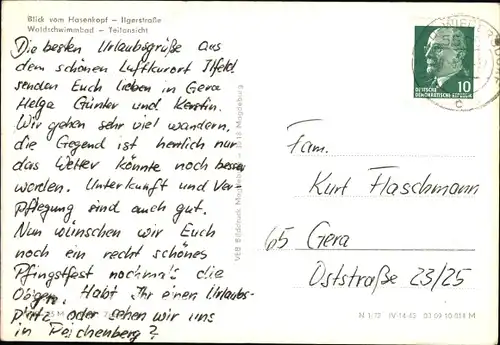 Blick vom Hasenkopf – Ilgerstraße
Waldschwimmbad – Teilansicht
Die besten Urlaubsgrüße aus
dem schönen Luftkurort Ilfeld
senden Euch lieben in Gera
Helga Günter und Kerstin.
Wir gehen sehr viel wandern,
die Gegend ist herrlich nur
das Wetter könnte noch besser
worden. Unterkunft und Ver-
pflegung sind auch gut.
Nun wünschen wir Euch
noch ein recht schönes
Pfingstfest nochmals die
Obigen, Habt Ihr einen Urlaubs-
platz oder sehen wir uns
in Reichenberg?
VEB Bilddruck
Magdeburg
DEUTSCHE
DEMOKRATISCHE REPUBLIK
10
Fam.
Kurt Flaschmann
65 Gera
Oststraße 23/25
N 1/72 IV-14-45 03 09 10 014 M